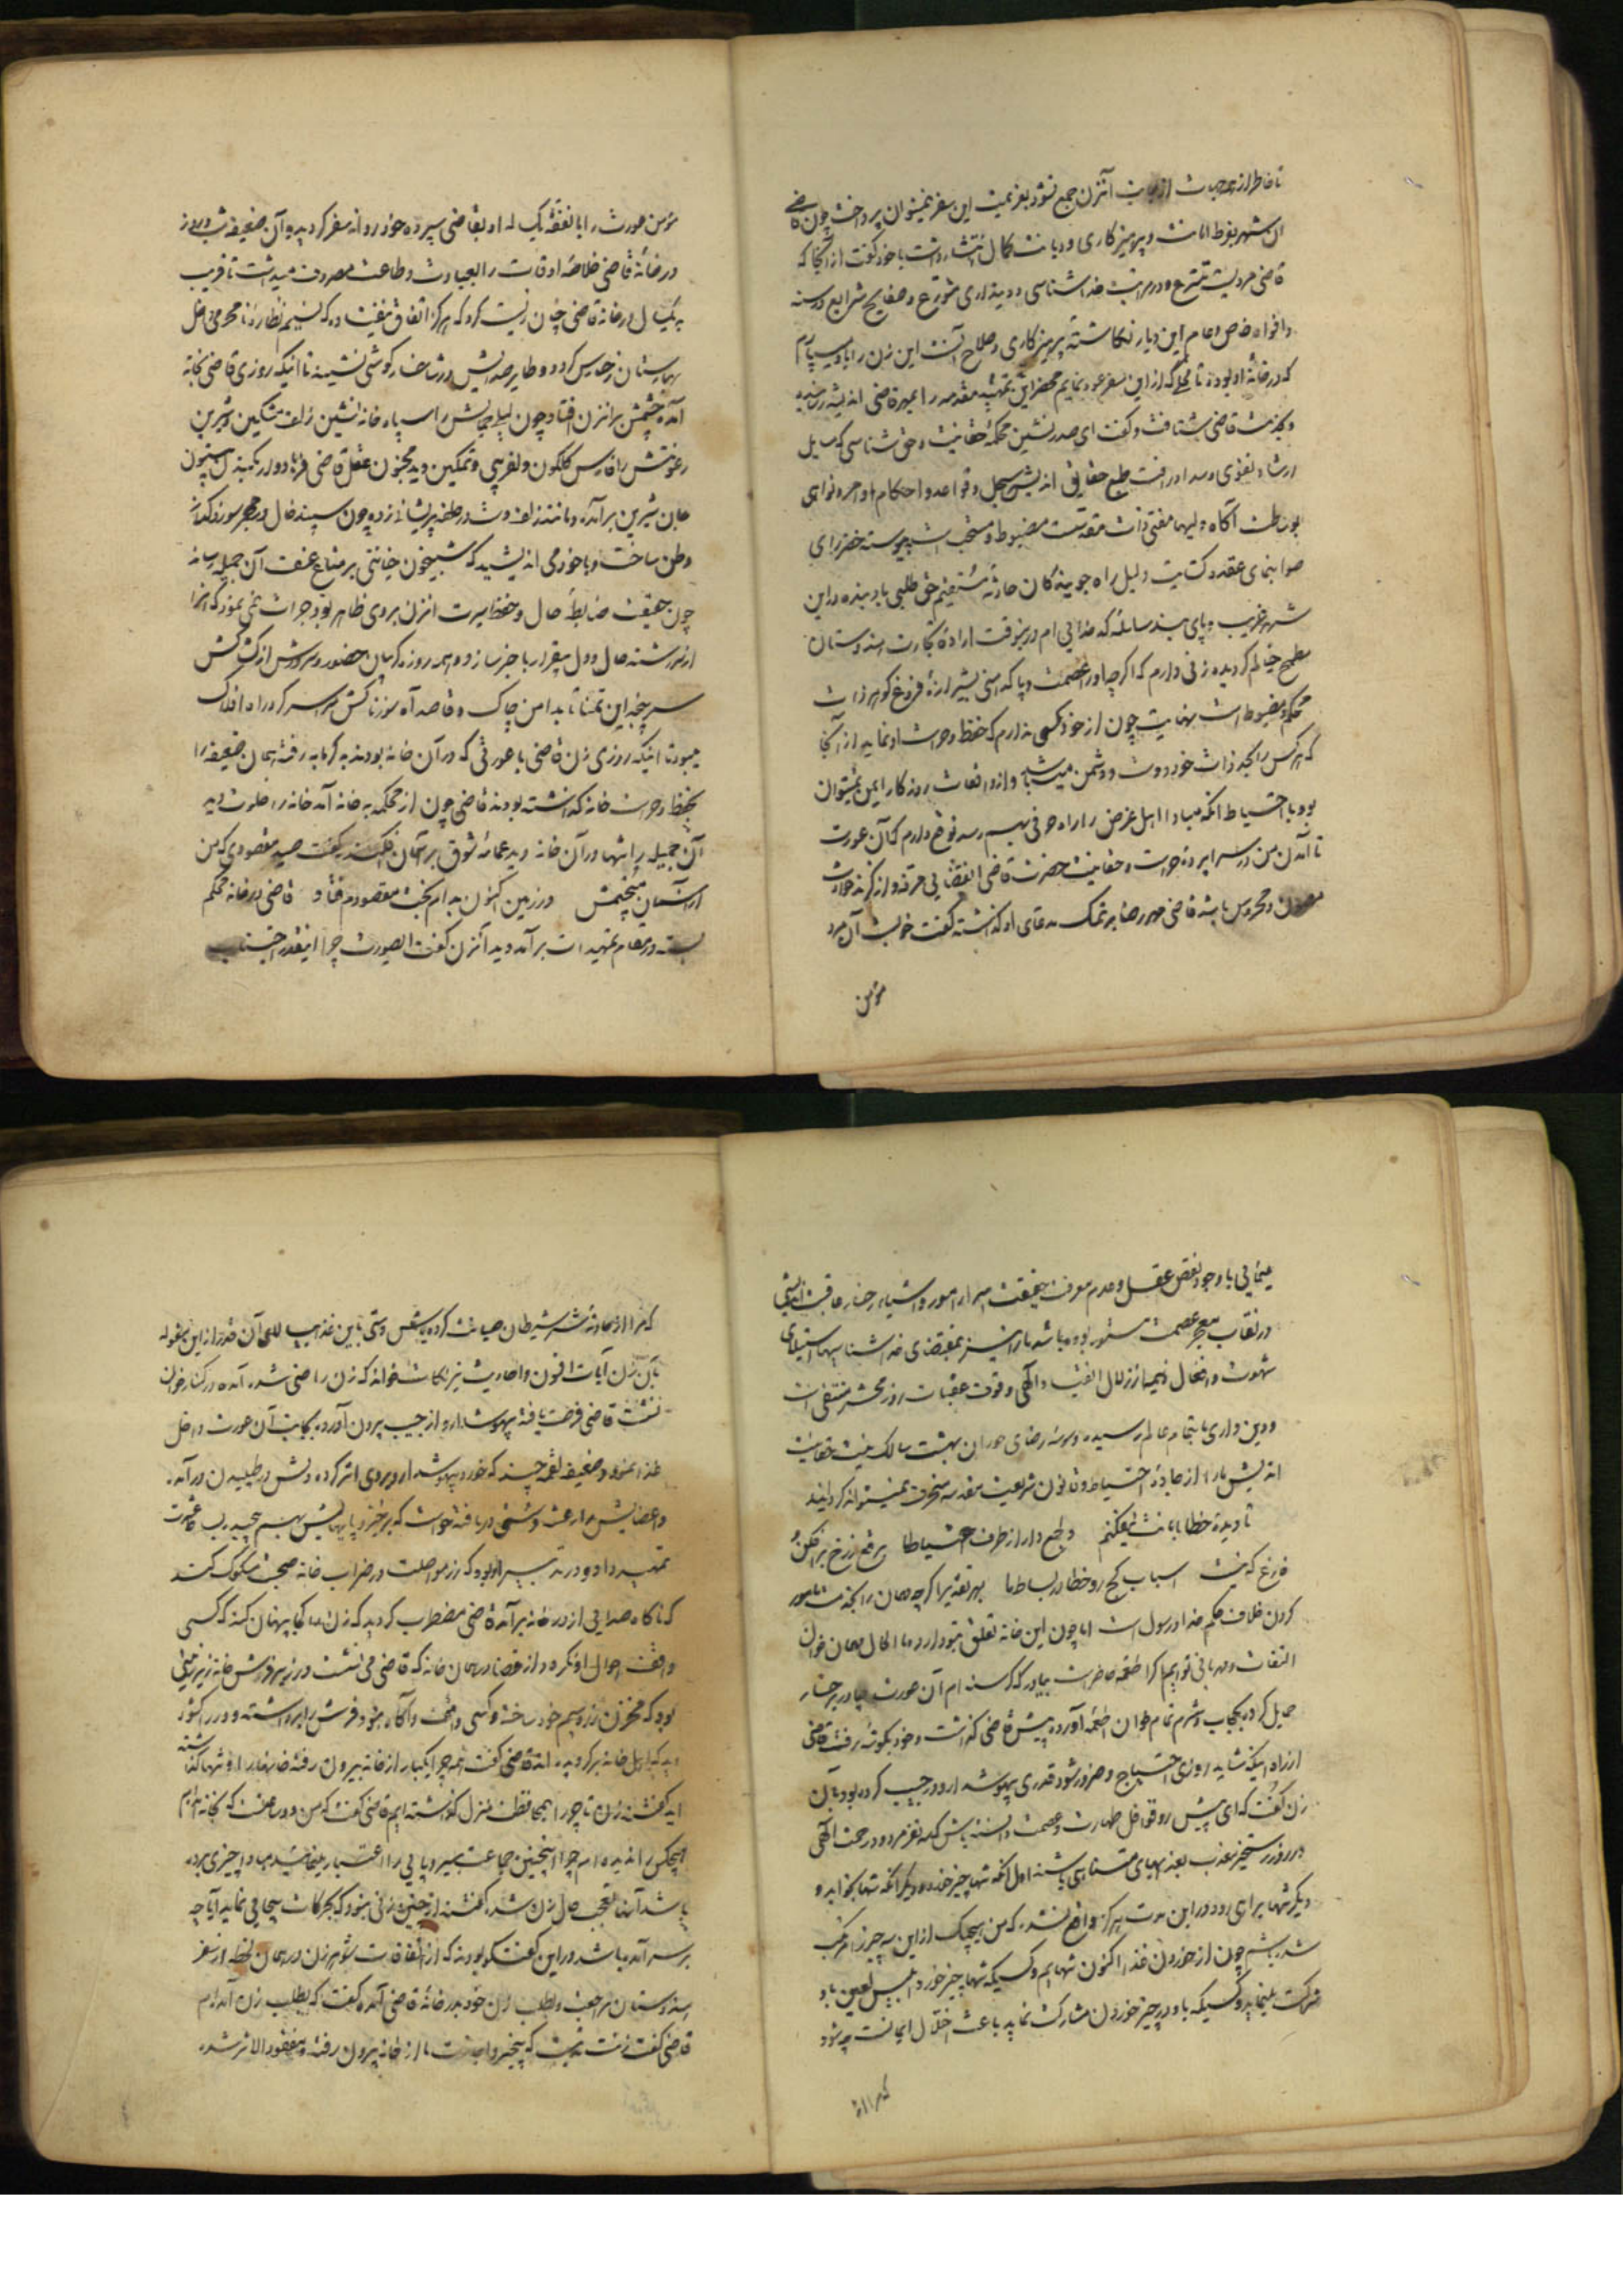 تا خاطر از جهت آنزن جمع نشود بعزیمت این سفر نمیتوان پرداخت چون قاضی
آن شهر بفرط امانت و پرهیزکاری و دیانت کمال اشتهار داشت با خود گفت از آنجا که
قاضی مردیست متشرع و در مراتب خداشناسی و دینداری متورع و صفایح شرایع در سنه
و افواه خاص و عام این دیار نگاشته پرهیزکاری و صلاح آنست این زن را باو سپارم
که در خانهٔ او بوده تا محلی که از این سفر عود نمایم محضر این تمهید مقدمه را بمهر قاضی اندیشه رسانیده
و بخدمت قاضی شتافت و گفت ای صدرنشین محکمهٔ حقانیت و حق شناسی که
ارشاد تقوی و سداد رأفت طبع حقایق اندیش سجل و قواعد و احکام اوامر و نواهی
بوساطت آگاه دلیها مفتی ذات مقدست مضبوط و مستحب است پیوسته خضر رای
صوابنمای عقده‌گشایت دلیل راه جویندگان جادهٔ مستقیم حق طلبی باد بنده در این
شهر غریب و پای بند سلسلهٔ کدخدایی ام در اینوقت ارادهٔ تجارت هندوستان
مطمح خیالم گردیده زنی دارم که اگرچه اوراق عصمت و پاکدامنی بشیرازهٔ فروغ گوهر ذات
محکم و مضبوط است نهایت چون از خود کسی ندارم که حفظ و حراست او نماید از آنجا
که هر کس را بجهد ذات خود دوست و دشمن میباشد و از واقعات روزگار ایمن نمیتوان
بود با احتیاط آنکه مبادا اهل غرض را راه حرفی بهم رسد توقع دارم که آن عورت
تا آمدن من در سراپردهٔ حراست و حقانیت حضرت قاضی القضاتی مرفه و از گزند حوادث
مصون و محروس باشد قاضی مهر رضا بر تمسک مدعای او گذاشته گفت خوبست آن مرد
مؤمن
مؤمن عورت را با نفقهٔ یک ساله او بقاضی سپرده خود روانه سفر گردید و آن ضعیفه شب و روز
در خانهٔ قاضی خلاصهٔ اوقات را بعبادت و طاعت مصروف میداشت تا قریب
به یکسال در خانهٔ قاضی چنان زیست کرد که هرگز اتفاق نیفتاد که نسیم نظارهٔ نامحرمی داخل
بهارستان رخسارش گردد و طایر صدایش در شاخسار گوشی نشیند تا اینکه روزی قاضی بخانه
آمده چشمش بر آنزن افتاد چون لیلی جمالش را سیاه خانه نشین زلف مشکین و شیرین
رعونتش را فارس گلگون دلفریبی و تمکین دید مجنون عقل قاضی فرهاد وار بکندن بیستون
جان شیرین برآمد و مانند زلف دست در حلقهٔ پریشانی زده چون سپند خال در مجمر سوز و گداز
وطن ساخت و با خود می اندیشید که شبیخون خیانتی بر متاع عفت آن جمیله رساند
چون حقیقت ضابطهٔ حال و حفظ سیرت آنزن بر وی ظاهر بود جرأت نمی نمود که او را
از سررشته حال دل بیقرار با خبر سازد و همه روزه گریبان حضور و سرورش از کشاکش
سرپنجهٔ این تمنا تا بدامن چاک و قاصد آه سوزناکش سراسر گرد راه افلاک
میبود تا اینکه روزی زن قاضی با عورتی که در آن خانه بودند به گرمابه رفته همان ضعیفه را
بحفظ و حراست خانه گذاشته بودند قاضی چون از محکمه به خانه آمد خانه را خلوت دید
آن جمیله را تنها در آن خانه دید عمامهٔ شوق بر آسمان افکنده گفت صید مقصودی که من
از آسمان میجستمش در زمین اکنون به دام بخت مقصودم فتاد قاضی در خانه محکم
بسته در مقام تمهیدات برآمد و بآنزن گفت ای عورت چرا اینقدر اجتناب
مینمایی با وجود نقص عقل و عدم معرفت بحقیقت اسرار امور و اشیاء رخسار عاقبت اندیشی
در نقاب معجر عصمت مستور بوده باشد ما را نیز بمقتضای خداشناسیها استیلای
شهوت و انفعال ذمیمه از زلال انقیاد آگهی و قوت عقبات روز محشر منتفی است
و دین داری ما بتمام عالم رسیده وسوسهٔ رضای حوران بهشت سالک نیت حقانیت
اندیش ما را از جادهٔ احتیاط و قانون شریعت مقدسه منحرف نمیتواند گردانید
تا دیده خطا بامانت نیفکنیم دایم مدار از طرف احتیاط ما برقع ز رخ برافکن و
فارغ که نیست اسباب کج روی خطا در بساط ما بهر تقدیر اگرچه مهمان را بخدمت مامور
کردن خلاف حکم خدا و رسول است اما چون این خانه تعلق بتو دارد و ما الحال مهمان خوان
التفات و مهربانی توایم اگر طعمهٔ حاضر است بیاور که گرسنه ام آن عورت چادر بر رخسار
حمایل کرده بحجاب و شرم تمام خوان طعمه آورده پیش قاضی گذاشت و خود بگوشهٔ رفت قاضی
از راه اینکه شاید روزی احتیاج و ضرور شود قدری بیهوشدارو در جیب کرده بود بآن
زن گفت که ای پیش رو قوافل طهارت و عصمت دانسته باش که سه نفر مردود رحمت الهی
در روز رستخیز معذب بعذابهای نامتناهی باشند اول آنکه تنها چیز خورد دیگر آنکه تنها بخوابد و
دیگر تنها براهی رود و در این مدت هرگز واقع نشد که من بیهیچیک از این سه چیز مرتکب
شده باشم چون از خوردن غذا اکنون تنهایم و کسیکه تنها چیز خورد ابلیس لعین باو
شرکت مینماید و کسیکه باو در چیز خوردن مشارکت نماید باعث اختلال ایمانست چه شود
که مرا از
که مرا از حادثهٔ شر شیطان صیانت کرده بنفس دستی باین غذا رسانی آن قدر از این مقوله
بآن زن آیات افسون و احادیث نیرنجات خواند که زن راضی شده آمده در کنار خوان
نشست قاضی فرصت یافته بیهوشدارو از جیب بیرون آورده بجانب آن عورت داخل
غذا نمود و ضعیفه لقمهٔ چند که خورد بیهوشدارو بروی اثر کرده دلش در طپیدن درآمد
و اعضایش را رعشه و سستی دریافته خواست که برخیزد پایهایش بهم پیچید
تمهید داد و در تدبیر آن بود که زر مواصلت در ضراب خانه صحبت مسکوک کند
که ناگاه صدایی از در خانه برآمد قاضی مضطرب گردید که زن را کجا پنهان کند که کسی
واقف احوال او نگردد از قضا در همان خانه که قاضی می نشست در زیر فرش خانه زیرزمینی
بود که مخزن زر و سیم خود ساخته و کسی واقف و آگاه نبود فرش را برداشته و در را گشود
دید که اهل خانه برگردیده اند قاضی گفت که چرا یکبار از خانه بیرون رفته خانه را تنها گذاشته
اید گفتند زن تاجر را بمحافظت منزل گذاشته ایم قاضی گفت که من دو ساعتست که بخانه آمده ام
هیچکس را ندیده ام چرا اینچنین جماعت بیسروپایی را اعتبار مینمائید مبادا چیزی برده
باشد آنها تعجب حال زن شده گفتند از چنین زنی نبود که حرکات بیجایی نماید آیا چه
بر سر آمده باشد در این گفتگو بودند که از اتفاقات شوهر زن در همان لحظه از سفر
هندوستان مراجعت و بطلب زن خود بدر خانهٔ قاضی آمده گفت که بطلب زن آمده ام
قاضی گفت زنت نیست که بیخبر و اجازت ما از خانه بیرون رفته و مفقود الاثر شده